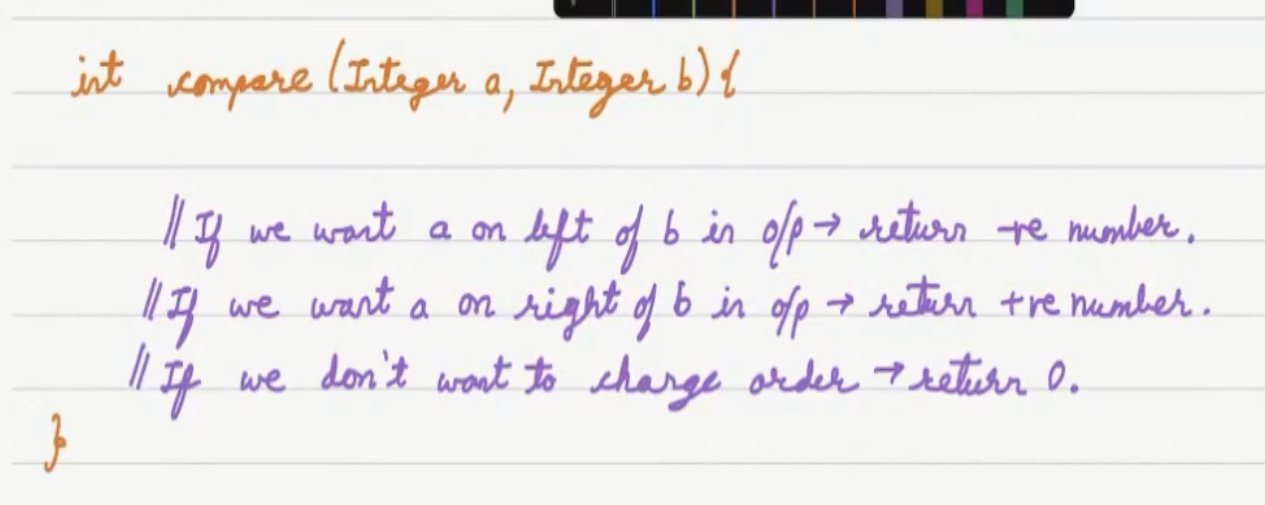 int compare (Integer a, Integer b) {
// If we want a on left of b in o/p → return -ve number.
// If we want a on right of b in o/p → return +ve number.
// If we don't want to change order → return 0.
}